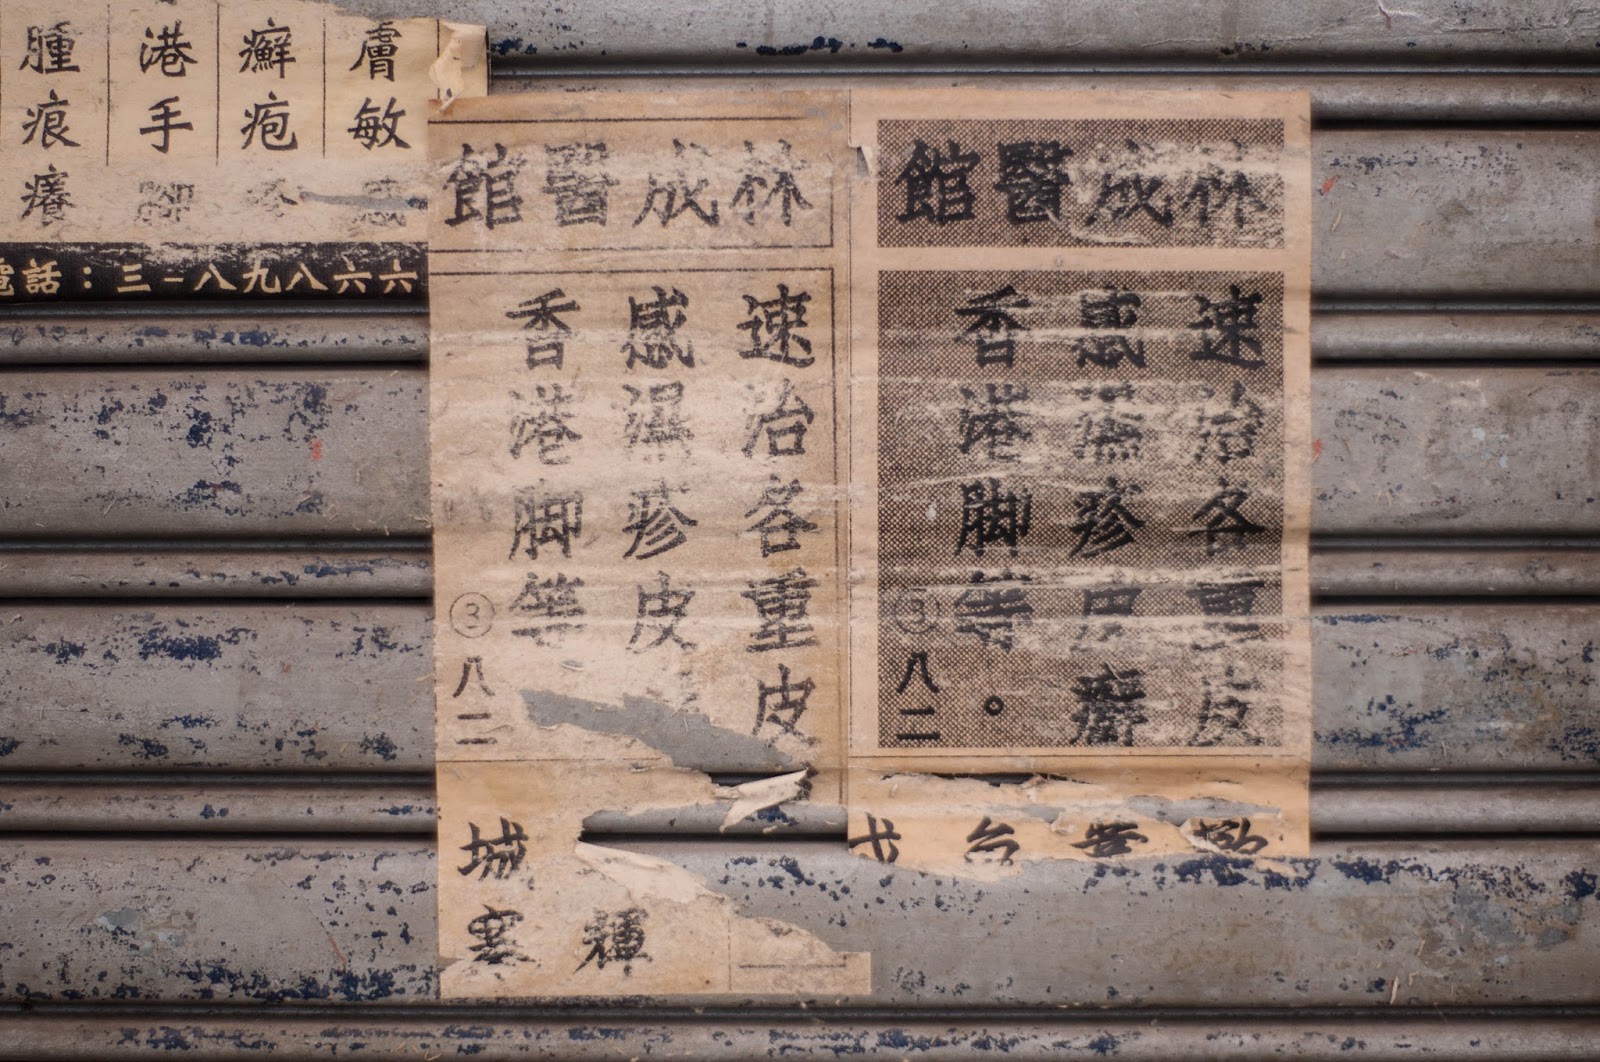 膚敏感
癬疱疹
港手腳
腫痕癢
電話：三-八九八六六
林成醫館
速治各重皮
感濕疹皮癬
香港脚等。
③八二
林成醫館
速治各重皮
感濕疹皮
香港脚等
③八二
輝
城寒